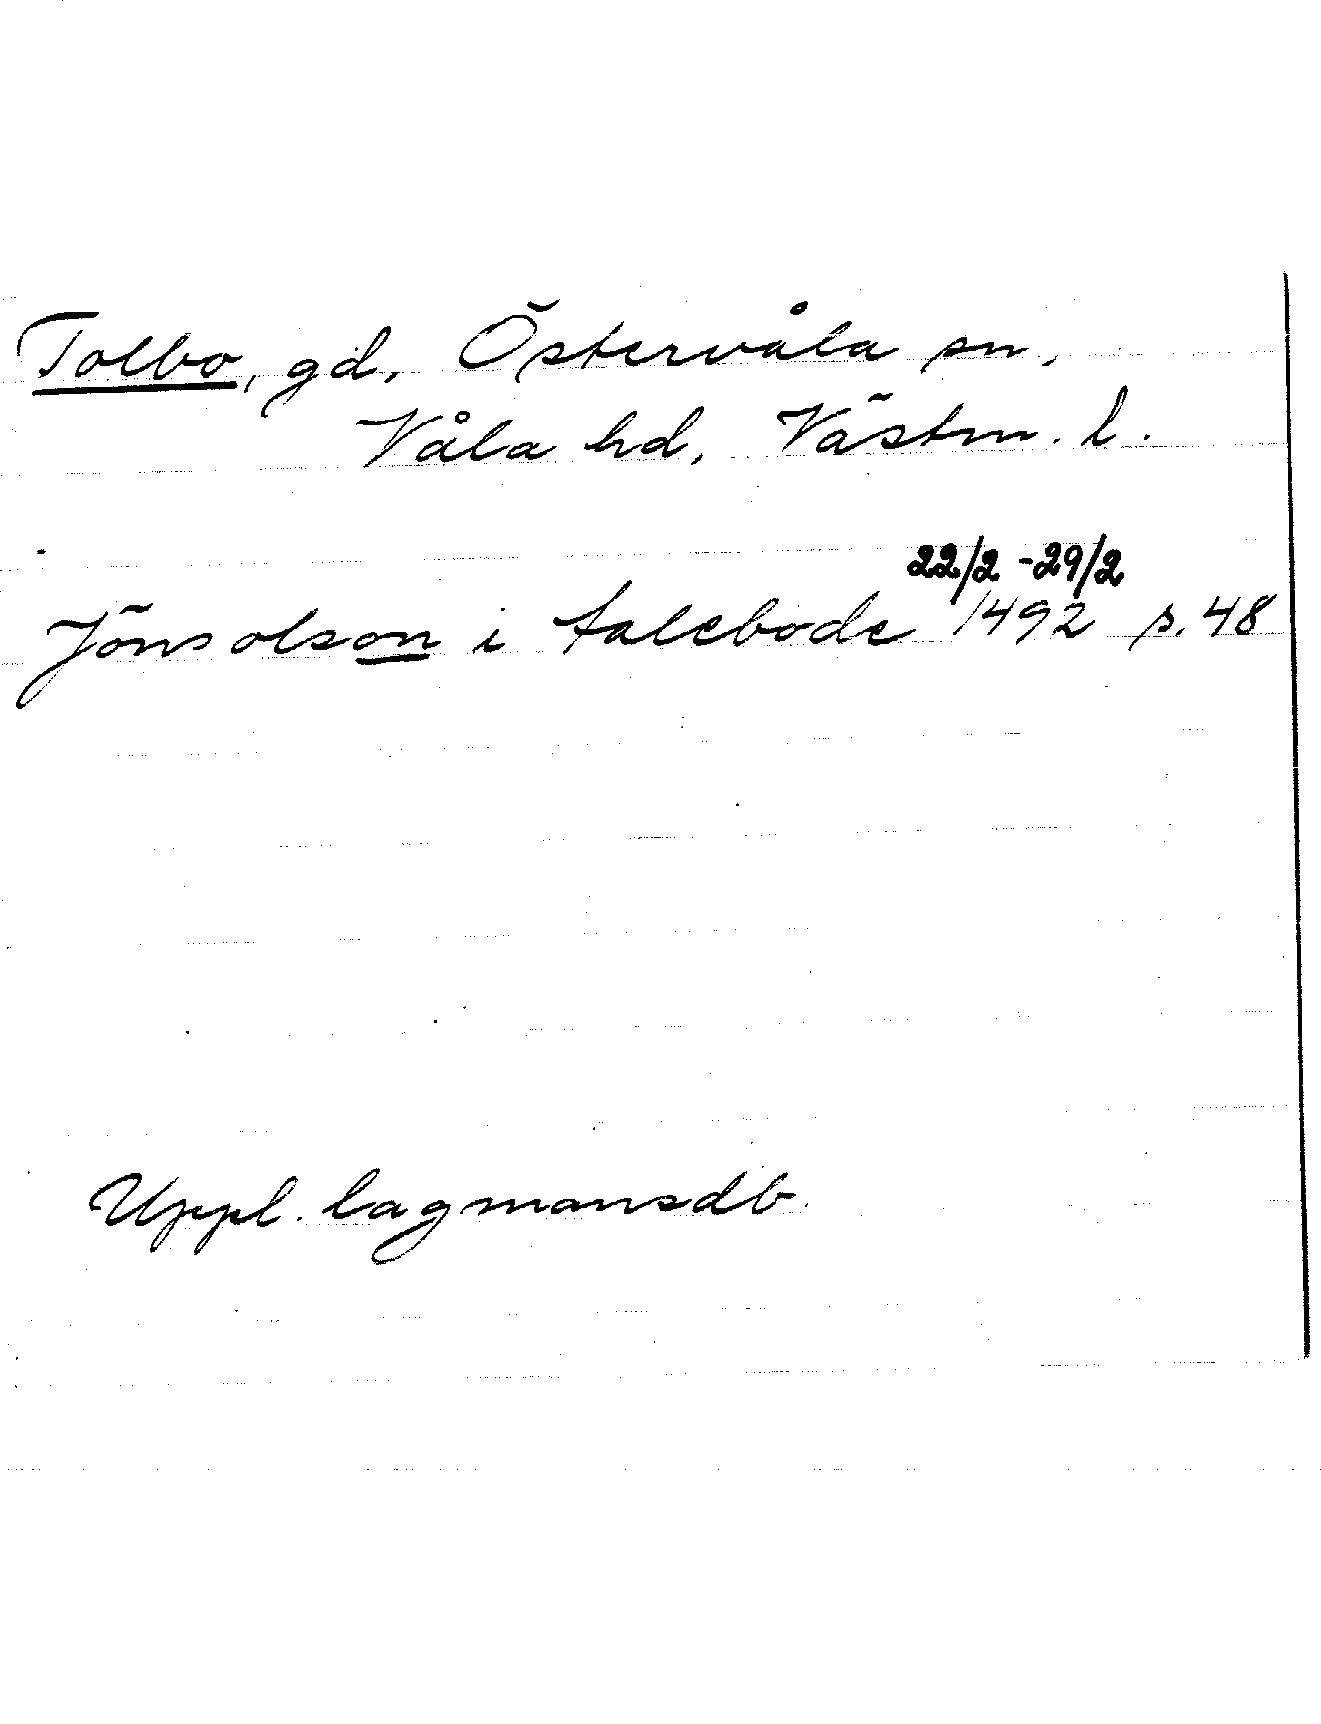 Tolbo, gd, Östervåla sn,
Våla hd, Västm. l.
22/2 - 29/2
Jöns olson i talebode 1492 s. 48
Uppl. lagmansdb.